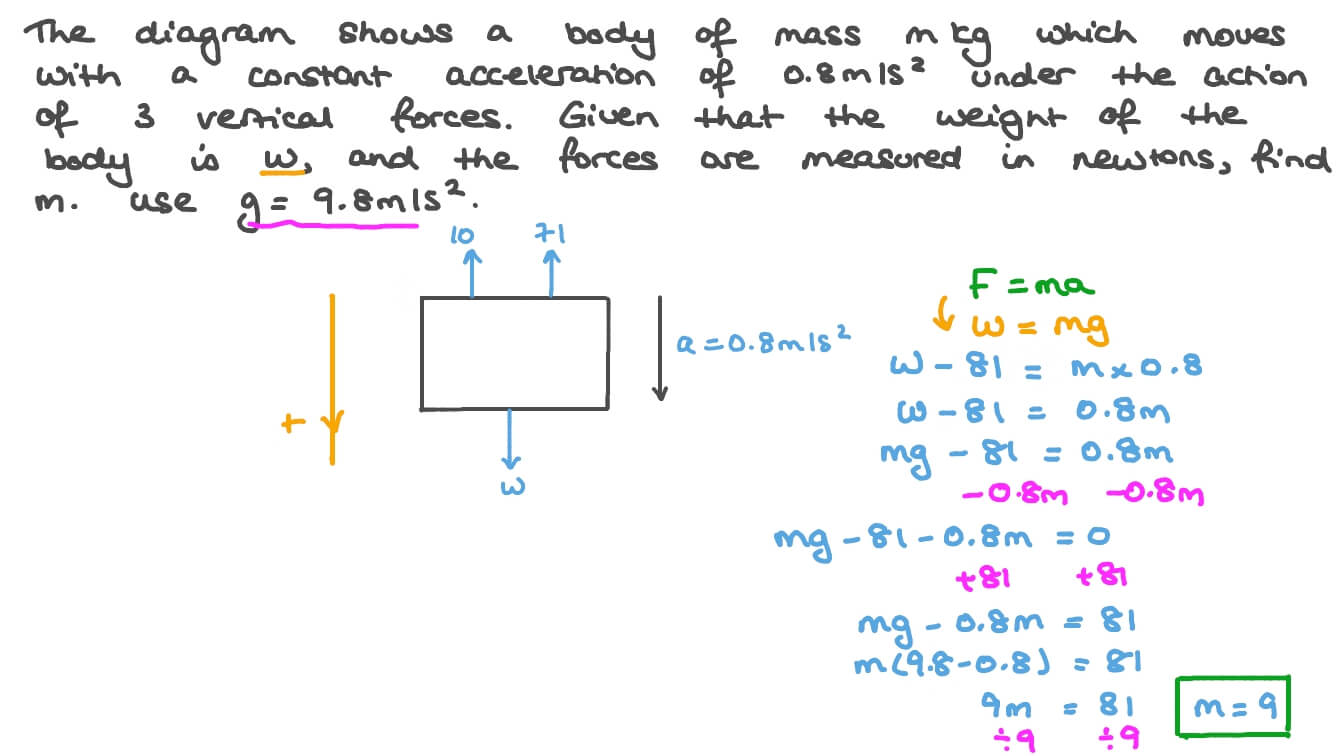 The diagram shows a body of mass m kg which moves
with a constant acceleration of 0.8m/s² under the action
of 3 vertical forces. Given that the weight of the
body is w, and the forces are measured in newtons, find
m. use g = 9.8m/s².
10 71
F = ma
w = mg
a = 0.8m/s²
w - 81 = m × 0.8
w - 81 = 0.8m
+
mg - 81 = 0.8m
w
-0.8m -0.8m
mg - 81 - 0.8m = 0
+81 +81
mg - 0.8m = 81
m(9.8-0.8) = 81
9m = 81
m = 9
÷9 ÷9